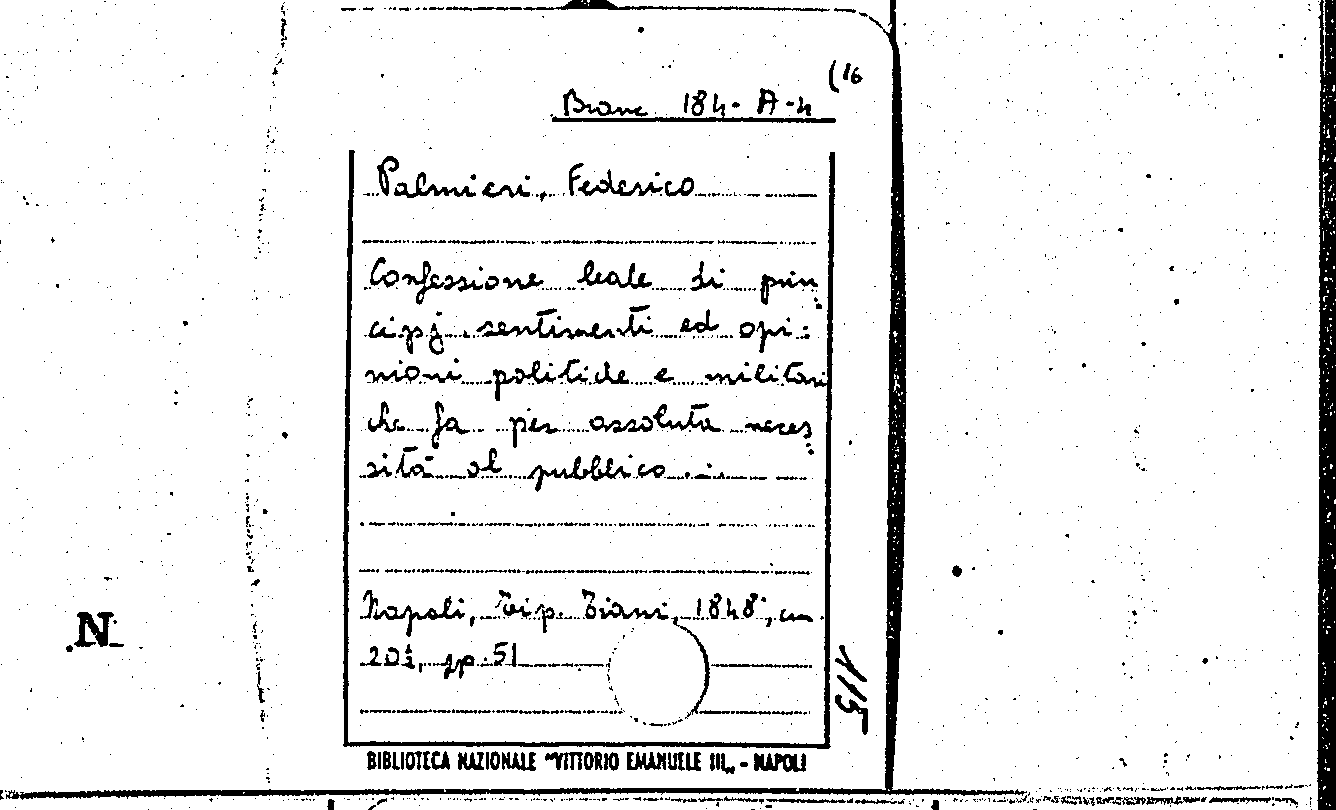 (16
Branc 184- A-4
Palmieri, Federico
Confessione leale di prin
cipj sentimenti ed opi-
nioni politiche e militari
che fa per assoluta neces
sità al pubblico...
Napoli, Tip. Tiani, 1848, cm.
20½, pp. 51
1115
N
BIBLIOTECA NAZIONALE "VITTORIO EMANUELE III„ - NAPOLI